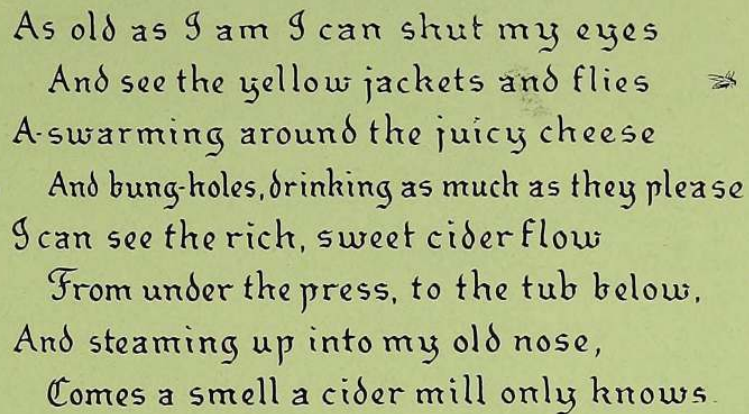 As old as I am I can shut my eyes
And see the yellow jackets and flies
A-swarming around the juicy cheese
And bung-holes, drinking as much as they please
I can see the rich, sweet cider flow
From under the press, to the tub below,
And steaming up into my old nose,
Comes a smell a cider mill only knows.